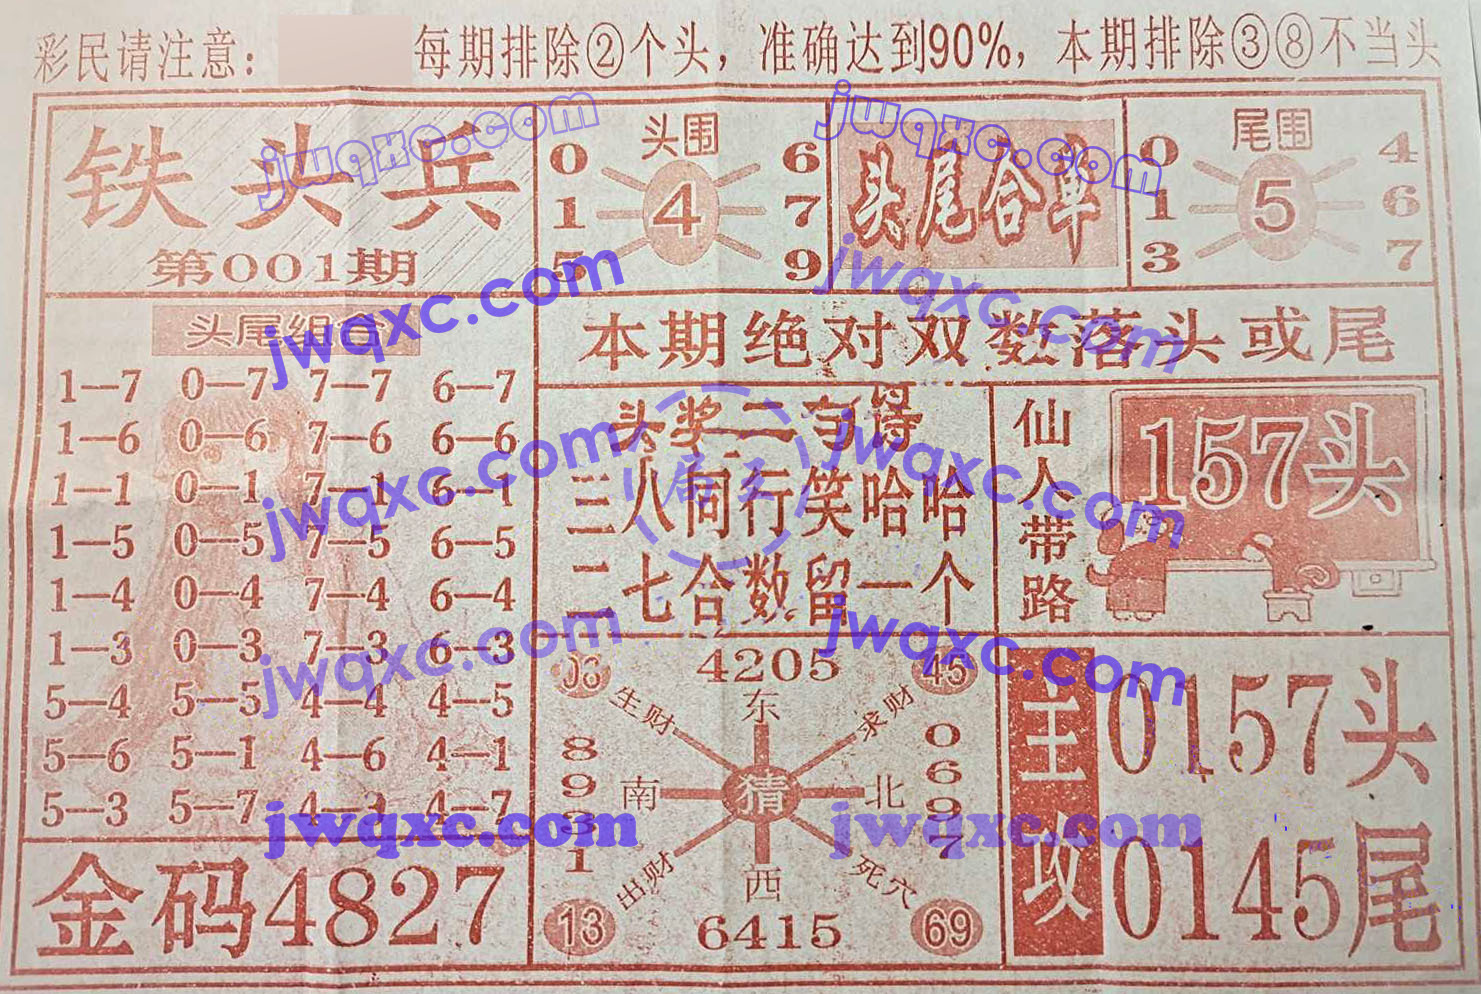 彩民请注意: 每期排除②个头，准确达到90%，本期排除③⑧不当头
铁头兵
第001期
头围
0 1 5
4
6 7 9
头尾合单
尾围
0 1 3
5
4 6 7
头尾组合
1—7 0—7 7—7 6—7
1—6 0—6 7—6 6—6
1—1 0—1 7—1 6—1
1—5 0—5 7—5 6—5
1—4 0—4 7—4 6—4
1—3 0—3 7—3 6—3
5—4 5—5 4—4 4—5
5—6 5—1 4—6 4—1
5—3 5—7 4—3 4—7
金码4827
本期绝对双数落头或尾
头奖二句诗
三八同行笑哈哈
二七合数留一个
仙人带路
157头
4205
45
生财 东 求财
8931
南 猜 北
0697
出财 西 死穴
13 6415 69
主攻
0157头
0145尾
jwqxc.com
jwqxc.com
jwqxc.com
jwqxc.com
jwqxc.com
jwqxc.com
jwqxc.com
jwqxc.com
jwqxc.com
jwqxc.com